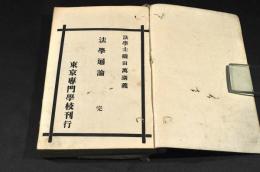 法學士織田萬講義
法學通論 完
東京專門學校刊行